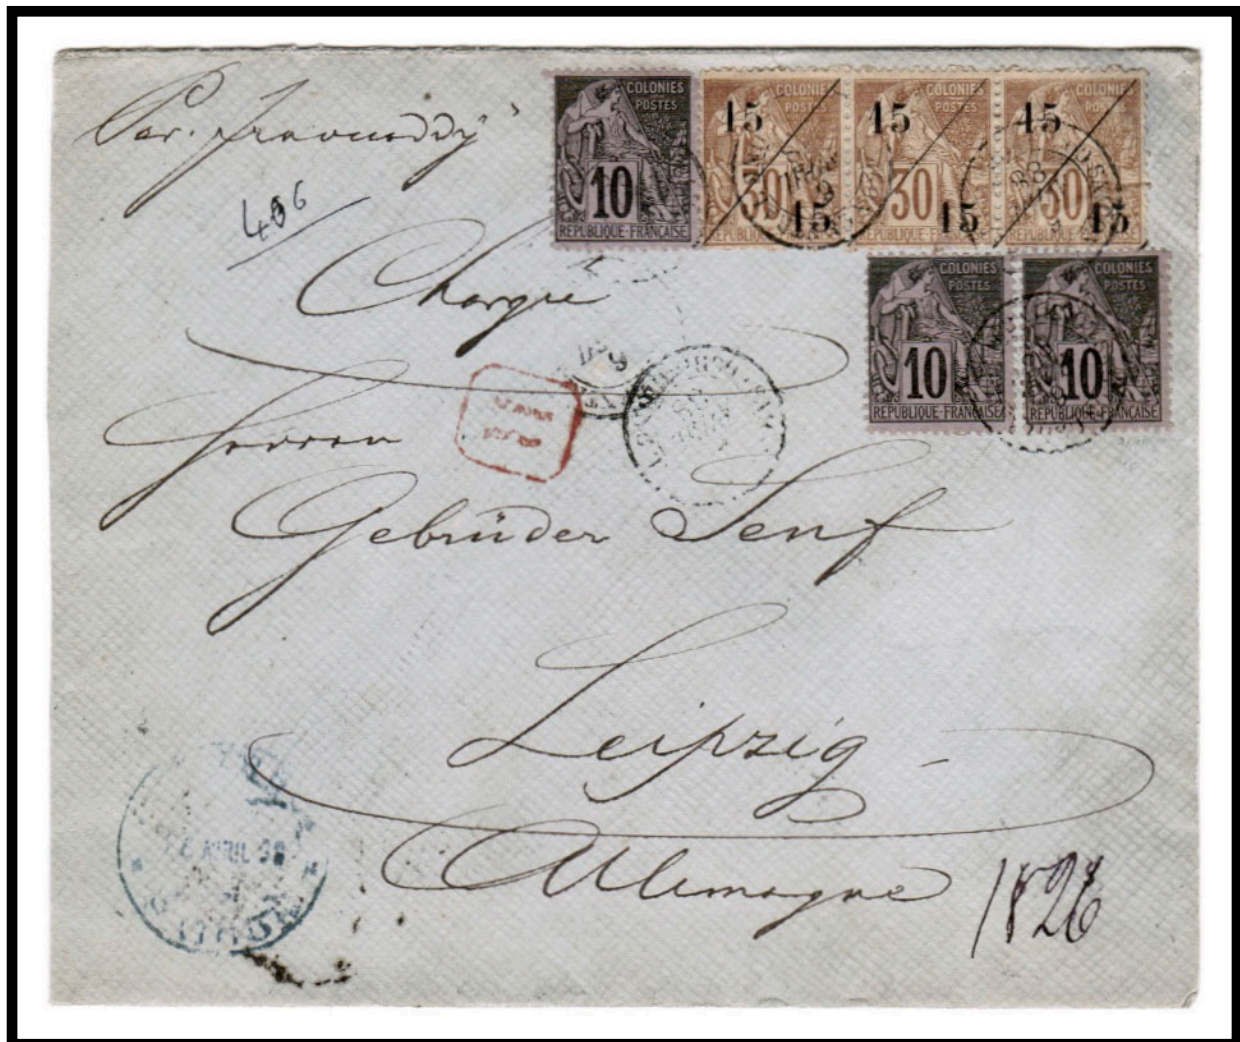 COLONIES
POSTES
10
REPUBLIQUE-FRANÇAISE
COLONIES
POSTES
15
30
15
REPUBLIQUE
COLONIES
POSTES
15
30
15
REPUBLIQUE-FRANÇAISE
COLONIES
POSTES
15
30
15
REPUBLIQUE-FRANÇAISE
Par.
406
Chargé
COLONIES
POSTES
10
REPUBLIQUE-FRANÇAISE
COLONIES
POSTES
10
REPUBLIQUE-FRANÇAISE
Herren
Gebrüder Senf
Leipzig
Allemagne
AVRIL
1826